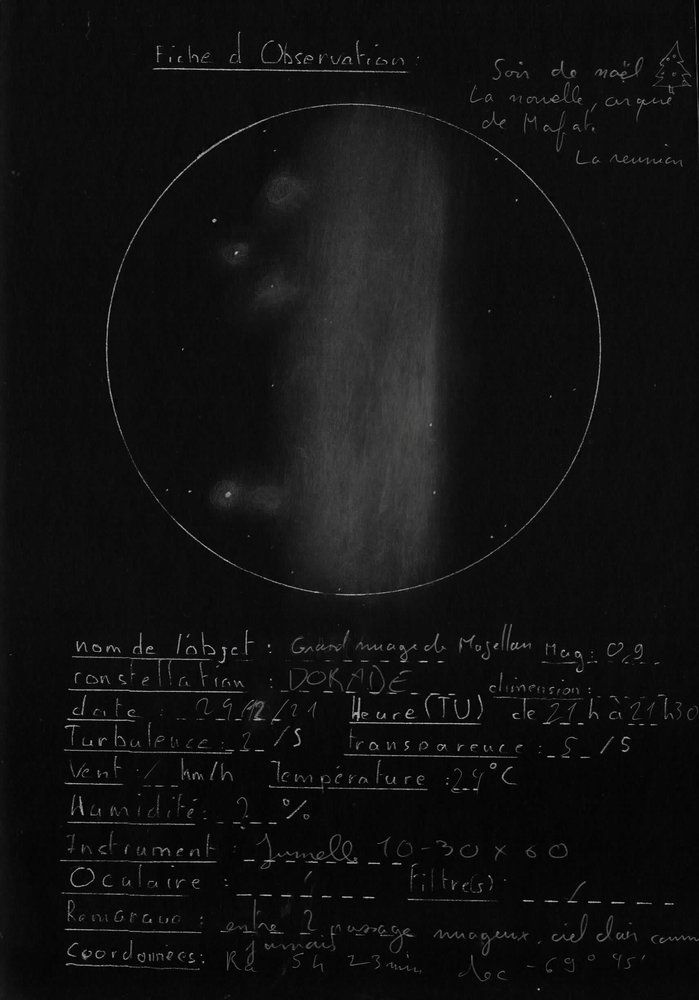 Fiche d'Observation :
Soir de noël
La nouvelle, cirque
de Mafate
La reunion
nom de l'objet : Grand nuage de Magellan Mag : 0,9
constellation : DORADE dimension :
date : /12/21 Heure (TU) de 21 h à 21 h 30
Turbulence : /5 transparence : 5 /5
Vent : / km/h Température : °C
Humidité : ? %
Instrument : Jumelle 10-30 x 60
Oculaire : / Filtre(s) : /
Remarque : entre 2 passage nuageux, ciel clair comm
jamais
Coordonnées : Ra 5h 23min dec -69° 45'